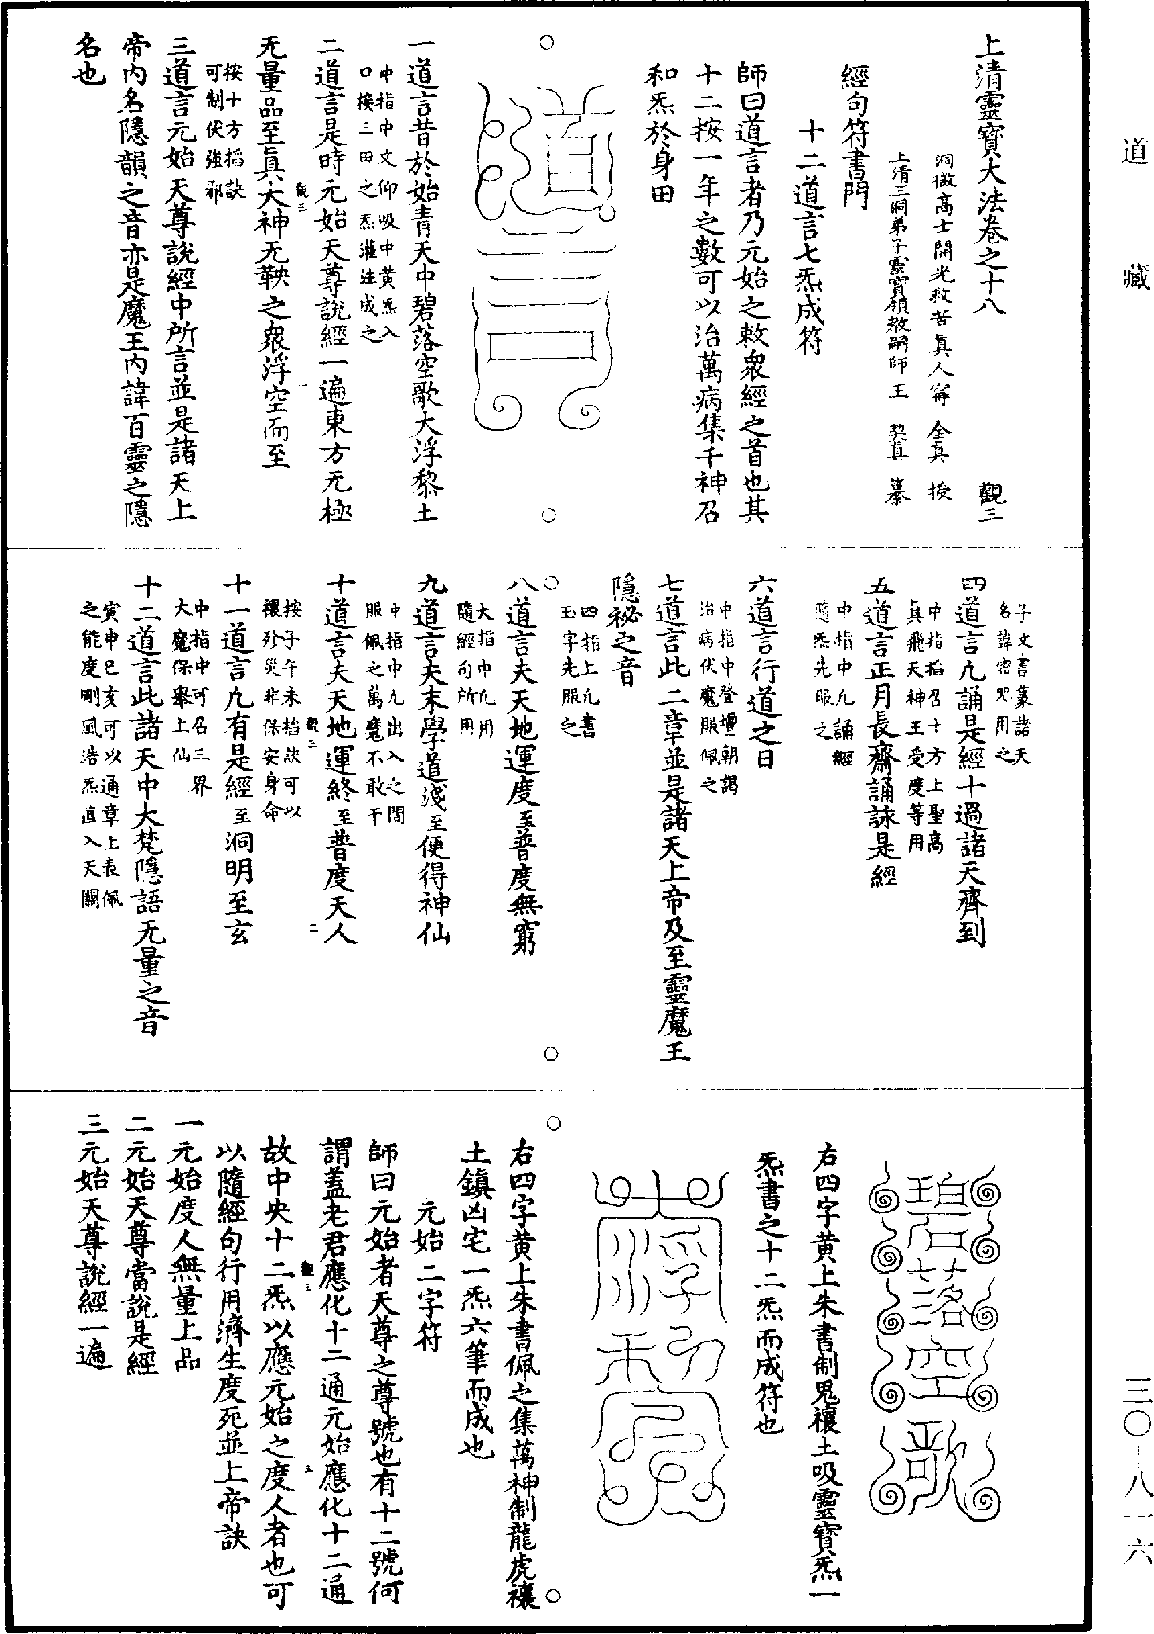 道藏
三〇—八一六
上清靈寶大法卷之十八　觀三
洞微高士開光救苦眞人甯　全眞　授
上清三洞弟子靈寶領教嗣師王　契眞　纂
經句符書門
十二道言七炁成符
師曰道言者乃元始之敕衆經之首也其
十二按一年之數可以治萬病集千神召
和炁於身田
一道言昔於始青天中碧落空歌大浮黎土
中指中文仰吸中黄炁入
口接三田之炁灌注成之
二道言是時元始天尊說經一遍東方无極
无量品至眞大神无鞅之衆浮空而至
按十方搯訣
可制伏強邪
三道言元始天尊說經中所言並是諸天上
帝內名隱韻之音亦是魔王內諱百靈之隱
名也
子文書篆諸天
名諱密咒用之
四道言凡誦是經十過諸天齊到
中指搯召十方上聖高
眞飛天神王受度等用
五道言正月長齋誦詠是經
中指中凡誦經
隨炁先服之
六道言行道之日
中指中登壇朝謁
治病伏魔服佩之
七道言此二章並是諸天上帝及至靈魔王
隱祕之音
四指上凡書
玉字先服之
八道言夫天地運度至普度無窮
大指中凡用
隨經句所用
九道言夫末學道淺至便得神仙
中指中凡出入之間
服佩之萬魔不敢干
十道言夫天地運終至普度天人
按子午未搯訣可以
禳殄災非保安身命
十一道言凡有是經至洞明至玄
中指中可召三界
大魔保舉上仙
十二道言此諸天中大梵隱語无量之音
寅申巳亥可以通章上表佩
之能度剛風浩炁直入天關
碧落空歌
右四字黄上朱書制鬼禳土吸靈寶炁一
炁書之十二炁而成符也
右四字黄上朱書佩之集萬神制龍虎禳
土鎮凶宅一炁六筆而成也
元始二字符
師曰元始者天尊之尊號也有十二號何
謂蓋老君應化十二通元始應化十二通
故中央十二炁以應元始之度人者也可
以隨經句行用濟生度死並上帝訣
一元始度人無量上品
二元始天尊當說是經
三元始天尊說經一遍